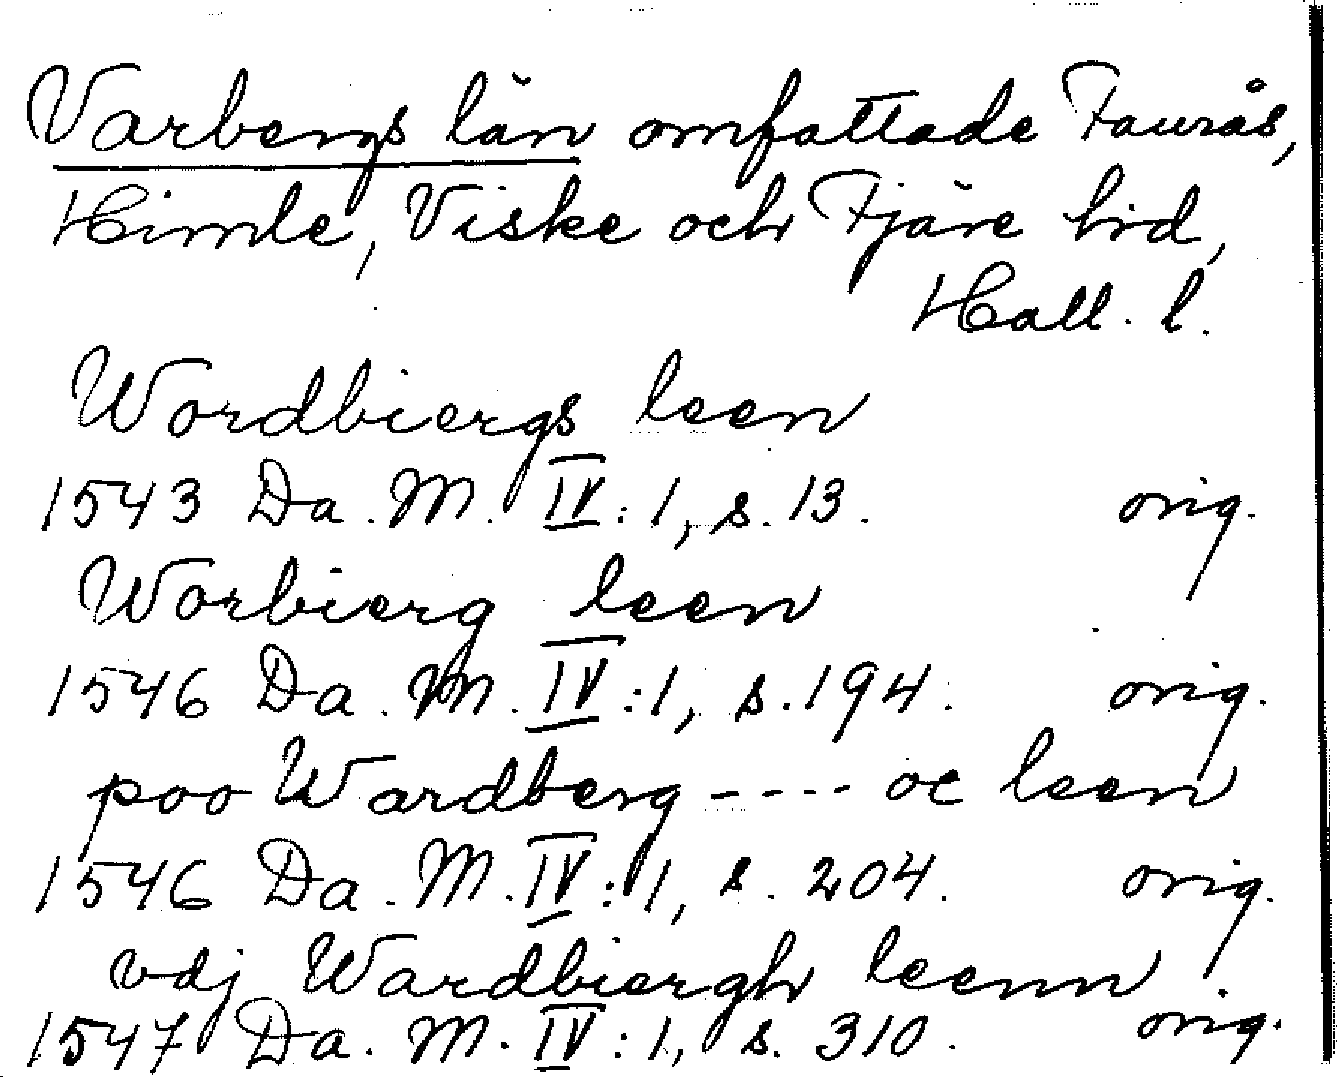 Varbergs län omfattade Faurås,
Himle, Viske och Fjäre hrd,
Hall. l.
Wordbiergs leen
1543 Da. M. IV: 1, s. 13. orig.
Worbierg leen
1546 Da. M. IV: 1, s. 194. orig.
poo Wardberg ---- oc leen
1546 Da. M. IV: 1, s. 204. orig.
vdj Wardbiergh leenn
1547 Da. M. IV: 1, s. 310. orig.